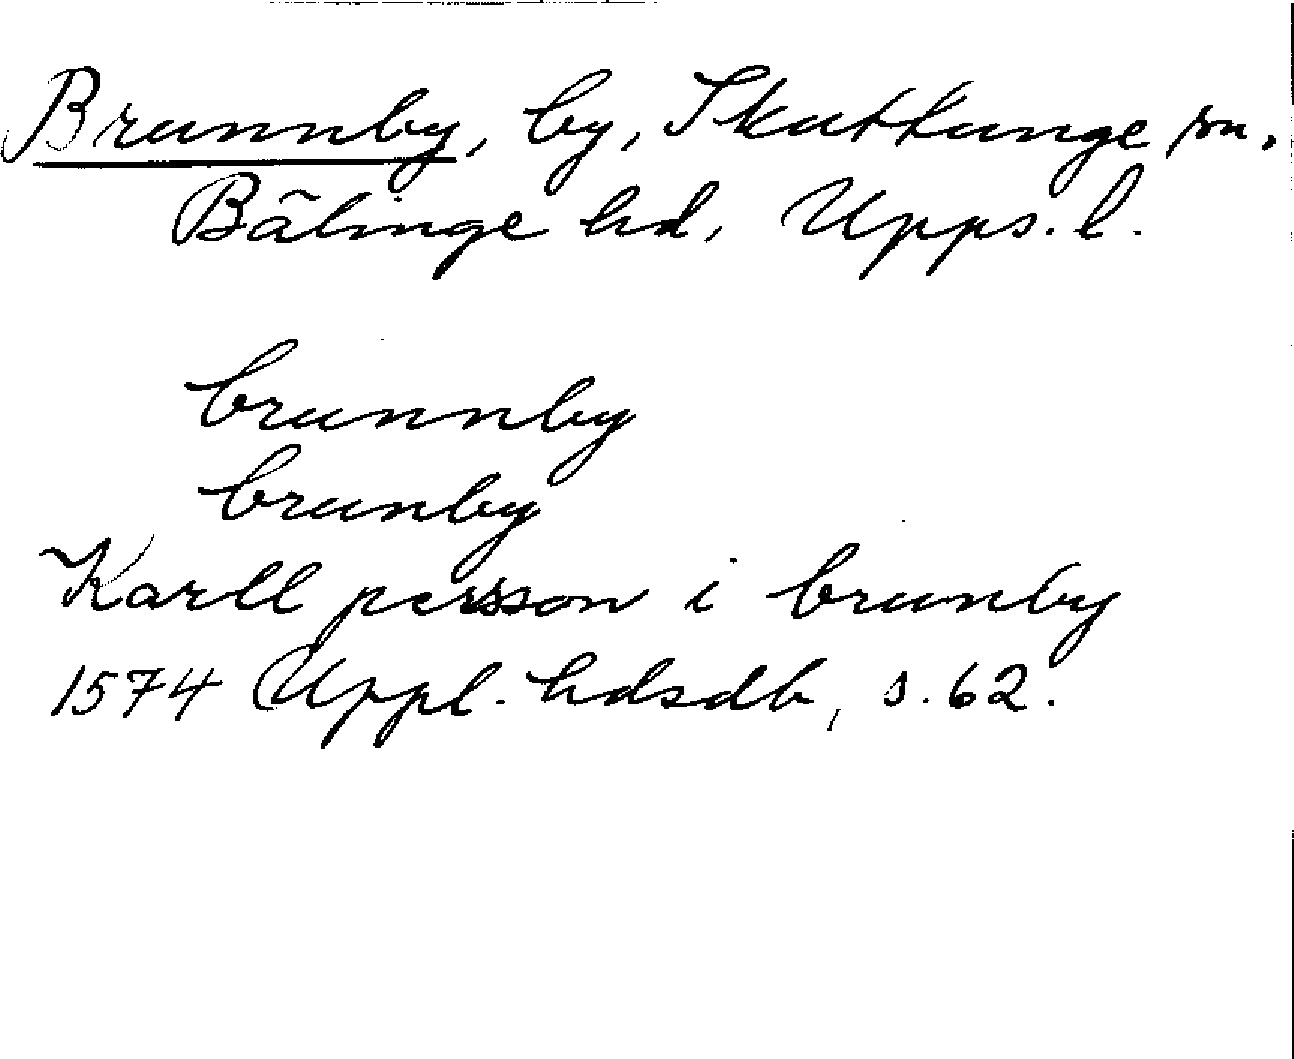 Brunnby, by, Skuttunge sn.
Bälinge hd, Upps. l.
brunnby
brunby
Karll persson i brunby
1574 Uppl. hdsdb, s. 62.